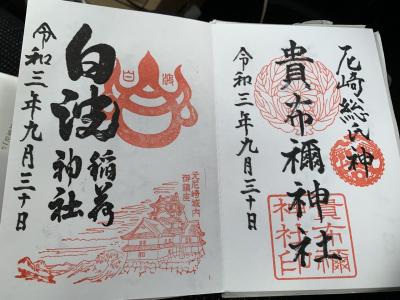 尼崎総氏神
貴布禰神社
令和三年九月三十日
貴布禰
神社印
白波稲荷神社
白波
元尼崎城内
御鎮座
令和三年九月三十日